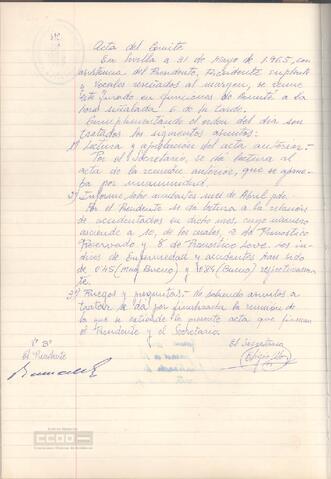 Acta del Comité
En Sevilla a 31 de Mayo de 1.965, con
asistencia del Presidente, Presidente suplente
y vocales reseñados al margen, se reune
este Jurado en funciones de Comité a la
hora señalada 6 de la tarde.
Cumplimentando el orden del dia son
tratados los siguientes asuntos:
1º) Lectura y aprobación del acta anterior.-
Por el Secretario, se da lectura al
acta de la reunión anterior, que se aprue-
ba por unanimidad.
2º) Informe sobre accidentes mes de Abril pdo.
Por el Presidente se da lectura a la relación
de accidentados en dicho mes, cuyo número
asciende a 10, de los cuales, 2 de Pronostico
Reservado y 8 de Pronostico Leve. Los in-
dices de enfermedad y accidentes han sido
de 0'45 (Muy Bueno) y 0'84 (Bueno) respectivamen-
te.
3º) Ruegos y preguntas.- No habiendo asuntos a
tratar se da por finalizada la reunión de
la que se extiende la presente acta que firman
el Presidente y el Secretario.
Vº Bº
El Presidente
El Secretario
CCOO